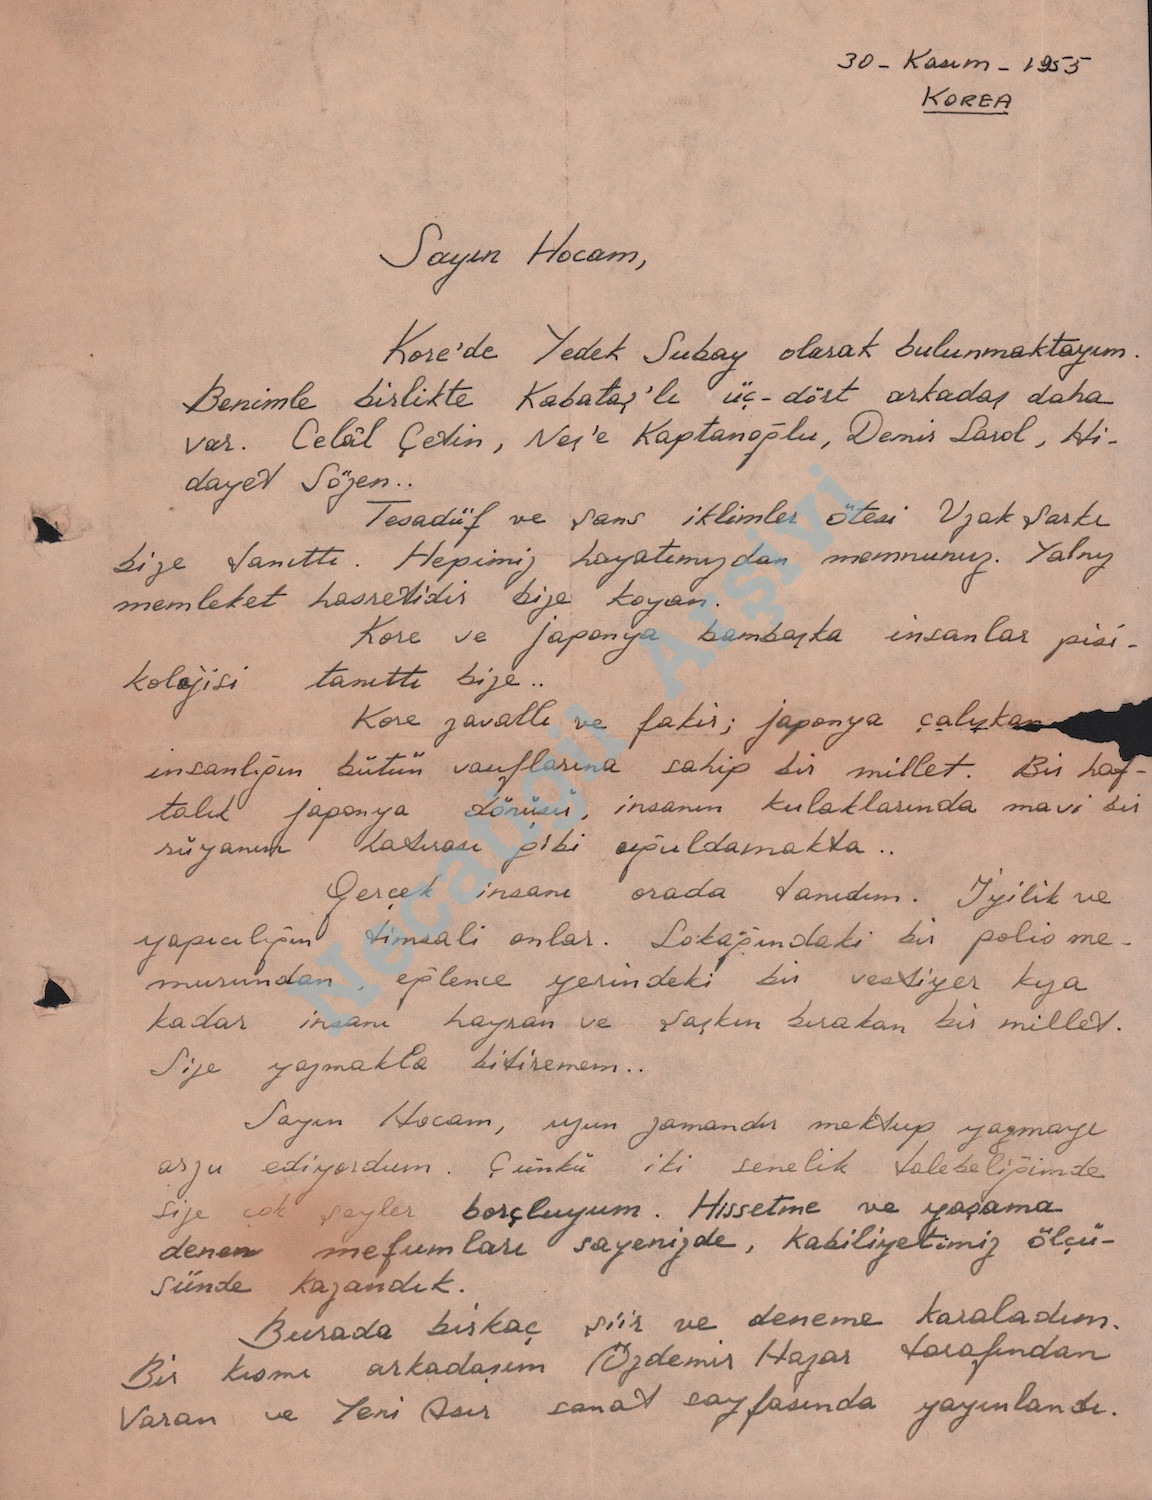 30 - Kasım - 1955
KOREA
Sayın Hocam,
Kore'de Yedek Subay olarak bulunmaktayım.
Benimle birlikte Kabataş'lı üç-dört arkadaş daha
var. Celâl Çetin, Neş'e Kaptanoğlu, Demir Sarol, Hi-
dayet Sözen..
Tesadüf ve şans iklimler ötesi Uzak Şarkı
bize tanıttı. Hepimiz hayatımızdan memnunuz. Yalnız
memleket hasretidir bize koyan.
Kore ve japonya bambaşka insanlar pisi-
kolojisi tanıttı bize..
Kore zavallı ve fakir; japonya çalışkan
insanlığın bütün vasıflarına sahip bir millet. Bir haf-
talık japonya dönüşü, insanın kulaklarında mavi bir
rüyanın hatırası gibi uğuldamakta..
Gerçek insanı orada tanıdım. İyilik ve
yapıcılığın timsali onlar. Sokağındaki bir polis me-
murundan, eğlence yerindeki bir vestiyer kıza
kadar insanı hayran ve şaşkın bırakan bir millet.
Size yazmakla bitiremem..
Sayın Hocam, uzun zamandır mektup yazmayı
arzu ediyordum. Çünkü iki senelik talebeliğimde
size çok şeyler borçluyum. Hissetme ve yaşama
denen mefumları sayenizde, kabiliyetimiz ölçü-
sünde kazandık.
Burada birkaç şiir ve deneme karaladım.
Bir kısmı arkadaşım Özdemir Hazar tarafından
Varan ve Yeni Asır sanat sayfasında yayınlandı.
Necatigil Arşivi